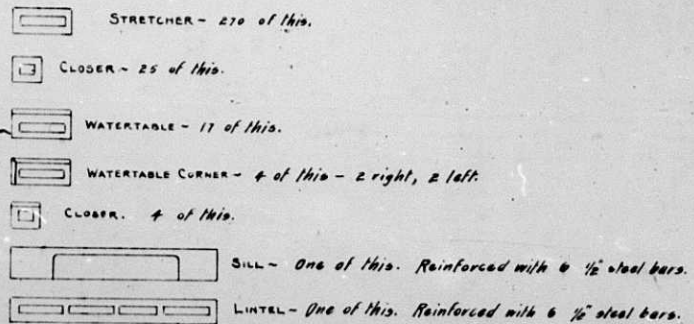 STRETCHER ~ 270 of this.
CLOSER ~ 25 of this.
WATERTABLE ~ 17 of this.
WATERTABLE CORNER ~ 4 of this ~ 2 right, 2 left.
CLOSER. 4 of this.
SILL ~ One of this. Reinforced with 6 1/2" steel bars.
LINTEL ~ One of this. Reinforced with 6 1/2" steel bars.